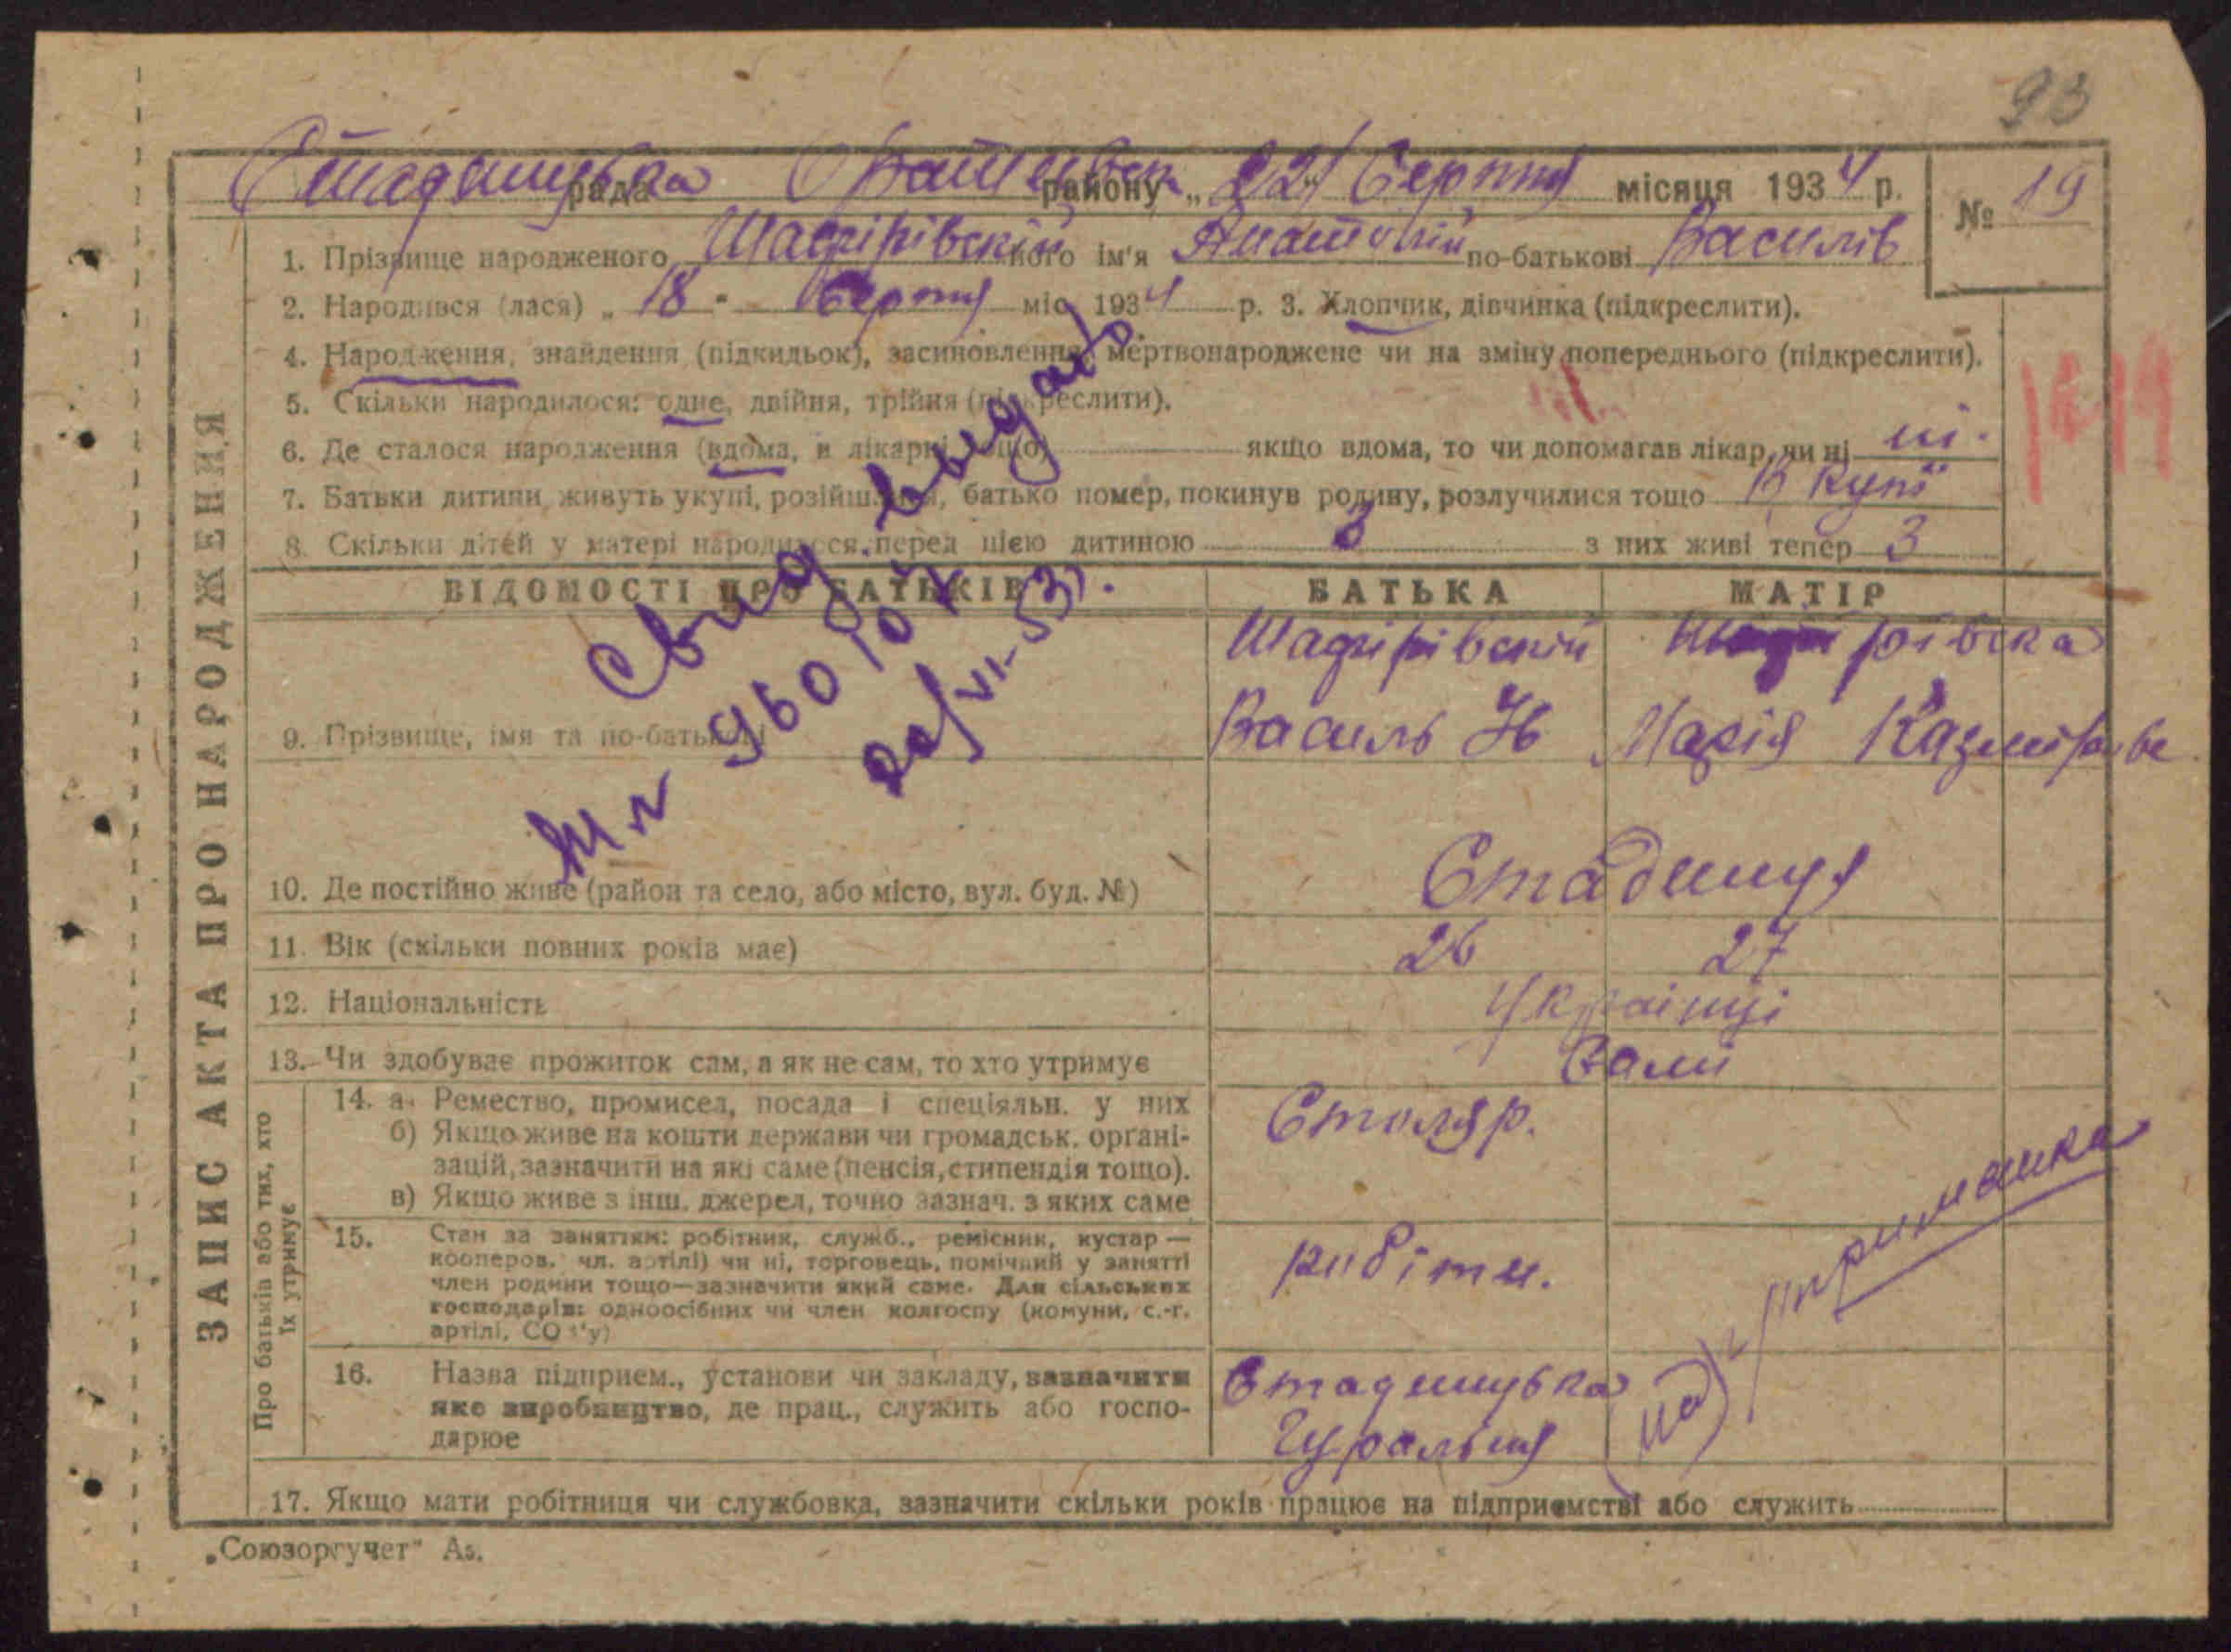 93
Стадницька рада району „22" Серпня місяця 1934 р.
№ 19
1. Прізвище народженого його ім'я Анатолій по-батькові Василів
2. Народився (лася) „18" Серпня міс. 1934 р. 3. Хлопчик, дівчинка (підкреслити).
4. Народження, знайдення (підкидьок), засиновлення, мертвонароджене чи на зміну попереднього (підкреслити).
5. Скільки народилося: одне, двійня, трійня (підкреслити).
6. Де сталося народження (вдома, в лікарні тощо) якщо вдома, то чи допомагав лікар, чи ні ні.
7. Батьки дитини живуть укупі, розійшлися, батько помер, покинув родину, розлучилися тощо В купі
8. Скільки дітей у матері народилося перед цією дитиною 3 з них живі тепер 3
14 19
Свид выдать
960104
20/VI-53.
ЗАПИС АКТА ПРО НАРОДЖЕННЯ
ВІДОМОСТІ ПРО БАТЬКІВ БАТЬКА МАТІР
9. Прізвище, імя та по-батькові
Василь Марія
10. Де постійно живе (район та село, або місто, вул. буд. №) Стадниця
11. Вік (скільки повних років має) 26 27
12. Національність Українці
13. Чи здобуває прожиток сам, а як не сам, то хто утримує Сами
Про батьків або тих, хто
їх утримує
14. а. Ремество, промисел, посада і спеціяльн. у них Столяр.
б) Якщо живе на кошти держави чи громадськ. органі-
зацій, зазначити на які саме (пенсія, стипендія тощо).
в) Якщо живе з інш. джерел, точно зазнач. з яких саме
15. Стан за заняттям: робітник, служб., ремісник, кустар —
кооперов. чл. артілі) чи ні, торговець, помічний у занятті
член родини тощо—зазначити який саме. Для сільських
господарів: одноосібних чи член колгоспу (комуни, с.-г.
артілі, СОЗ'у)
робітн.
на утриманка
16. Назва підприєм., установи чи закладу, зазначити
яке виробництво, де прац., служить або госпо-
дарює
Стадницька
Гуральня
17. Якщо мати робітниця чи службовка, зазначити скільки років працює на підприємстві або служить
„Союзоргучет" Аз.